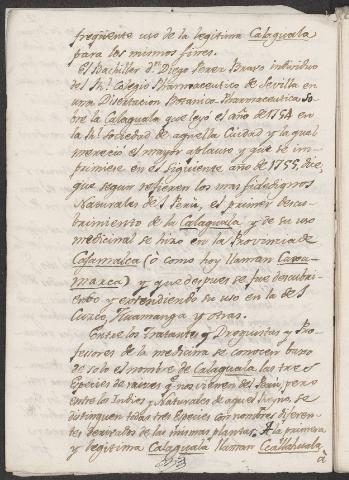 freqüente uso de la legitima Calaguala
para los mismos fines.
El Bachiller Dn. Diego Perez Bravo individuo
del Rl. Colegio Pharmaceutico de Sevilla en
una Disertacion Botanico-Pharmaceutica so-
bre la Calaguala que leyó el año de 1754 en
la Rl. Sociedad de aquella Ciudad y la qual
mereció el mayor aplauso y que se im-
primiese en el siguiente año de 1755, dice,
que segun refieren los mas fidedignos
Naturales del Perú, el primer descu-
brimiento de la Calaguala y de su uso
medicinal se hizo en la Provincia de
Cajamalca (o como hoy llaman Caxa-
marca) y que despues se fue descubri-
endo y extendiendo su uso en la del
Cuzco, Huamanga y otras.
Entre los Tratantes y Droguistas y Pro-
fesores de la medicina se conocen baxo
de solo el nombre de Calaguala, las tres
Especies de raices q. nos vienen del Perú, pero
entre los Indios y Naturales de aquel Reyno, se
distinguen todas tres Especies con nombres diferen-
tes derivados de las mismas plantas. A la primera
y legitima Calaguala llaman Ccallahuala,
à